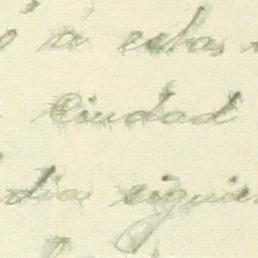 á estas
Ciudad
dia siguien